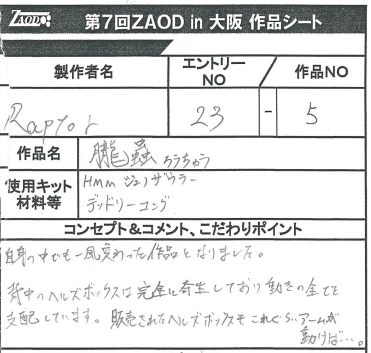 ZAOD 第7回ZAOD in 大阪 作品シート
製作者名 エントリーNO / 作品NO
Raptor 23 - 5
作品名 朧蟲 ろうちゅう
使用キット材料等 HMM ジェノザウラー
デッドリーコング
コンセプト&コメント、こだわりポイント
自身の中でも一風変わった作品となりました。
背中のヘルズボックスは完全に寄生しており動きの全てを
支配しています。販売されたヘルズボックスもこれぐらいアームが
動けば…。